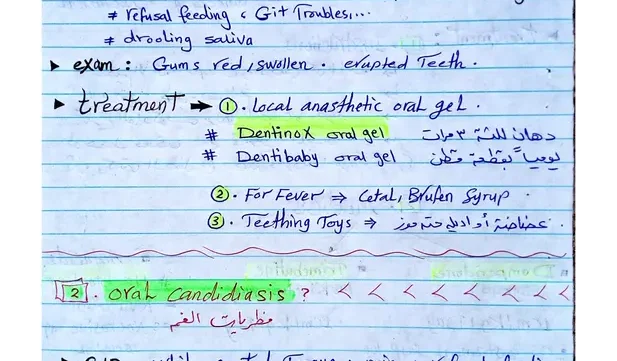 # refusal feeding, Git Troubles...
# drooling saliva
▸ exam: Gums red, swollen. erupted Teeth.
▸ treatment → ①. Local anasthetic oral gel.
# Dentinox oral gel دهان للثة ٣ مرات
# Dentibaby oral gel يومياً بقطعة قطن
②. For Fever ⇒ Cetal, Brufen Syrup
③. Teething Toys ⇒ عضاضة أو اديله حته موز
2. oral candidiasis ?
فطريات الفم